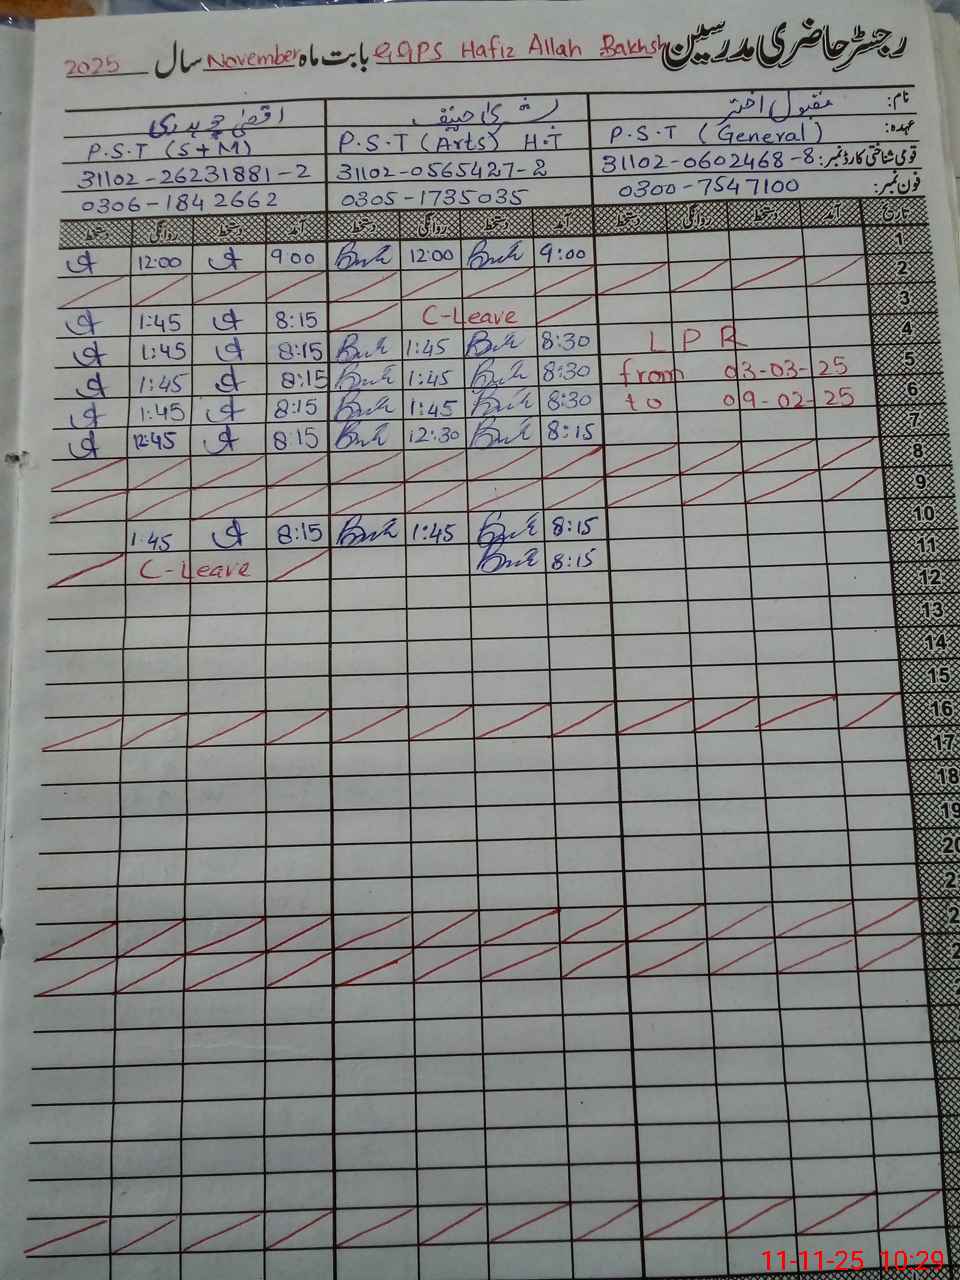 رجسٹر حاضری مدرسین GGPS Hafiz Allah Bakhsh بابت ماہ November سال 2025
نام: مقبول اختر
عہدہ: P.S.T (General) P.S.T (Arts) H.T P.S.T (S+M)
قومی شناختی کارڈ نمبر: 31102-0602468-8 31102-0565427-2 31102-26231881-2
فون نمبر: 0300-7547100 0305-1735035 0306-1842662
تاریخ آمد دستخط روانگی دستخط آمد دستخط روانگی دستخط آمد دستخط روانگی دستخط
1 9:00 12:00 9:00 12:00
2
3 C-Leave 8:15 1:45
4 L P R 8:30 1:45 8:15 1:45
5 from 03-03-25 8:30 1:45 8:15 1:45
6 to 09-02-25 8:30 1:45 8:15 1:45
7 8:15 12:30 8:15 12:45
8
9
10 8:15 1:45 8:15 1:45
11 8:15 C-Leave
12
13
14
15
16
17
18
19
20
2
2
2
11-11-25 10:29